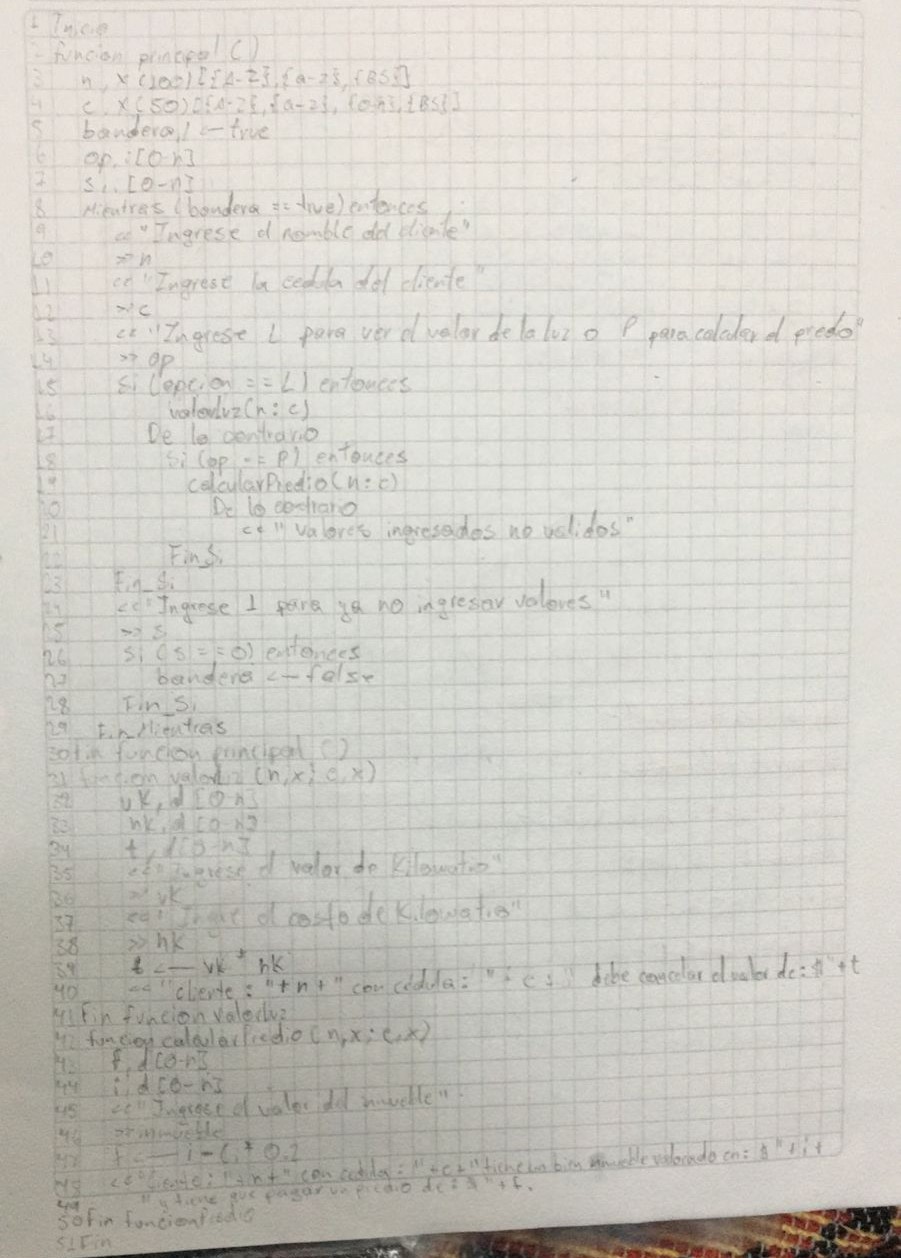 1 Inicio
2 funcion principal ()
3 n, x(100)[{A-Z},{a-z},{BS}]
4 c, x(50)[{A-Z},{a-z}, {0-n},{BS}]
5 bandera, l <- true
6 op, i [0-n]
7 s, i [0-n]
8 Mientras (bandera == true) entonces
9 << "Ingrese el nombre del cliente"
10 >> n
11 << "Ingrese la cedula del cliente"
12 >> c
13 << "Ingrese L para ver el valor de la luz o P para calcular el predio"
14 >> op
15 Si (opcion == L) entonces
16 valorluz(n; c)
17 De lo contrario
18 Si (op == P) entonces
19 calcularPredio(n; c)
20 De lo contrario
21 << "Valores ingresados no validos"
22 Fin_Si
23 Fin_Si
24 << "Ingrese 1 para ya no ingresar valores"
25 >> s
26 Si (s == 0) entonces
27 bandera <- false
28 Fin_Si
29 Fin_Mientras
30 Fin funcion principal ()
31 funcion valorluz (n,x; c,x)
32 vk, d [0-n]
33 nk, d [0-n]
34 t, d [0-n]
35 << "Ingrese el valor de Kilowatio"
36 >> vk
37 << " el costo de Kilowatio"
38 >> nk
39 t <- vk * nk
40 << "cliente : "+n+" con cedula: " + c + " debe cancelar el valor de: $ "+t
41 Fin funcion valorluz
42 funcion calcularPredio (n,x; c,x)
43 f, d [0-n]
44 i, d [0-n]
45 << "Ingrese el valor del inmueble"
46 >> inmueble
47 f <- i - (i * 0.2
48 << "cliente: "+n+" con cedula: "+c+" tiene un bien inmueble valorado en: $ "+i+
49 "y tiene que pagar un predio de: $ "+f.
50 Fin funcion Predio
51 Fin